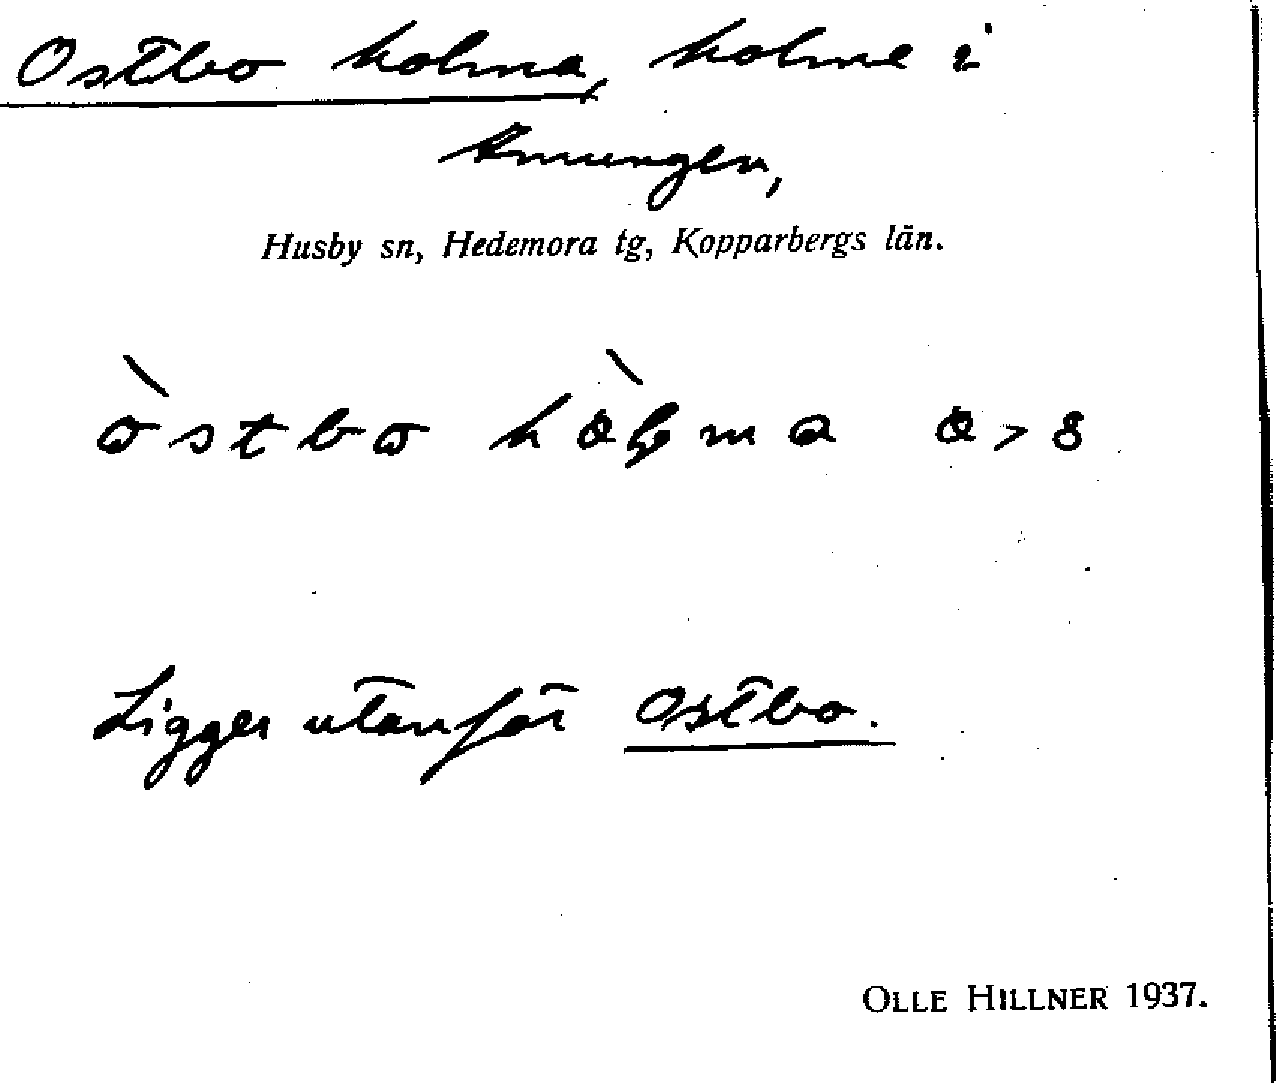 Ostbo holma, holme i
Amungen,
Husby sn, Hedemora tg, Kopparbergs län.
òstbo hòlma
Ligger utanför Ostbo.
OLLE HILLNER 1937.